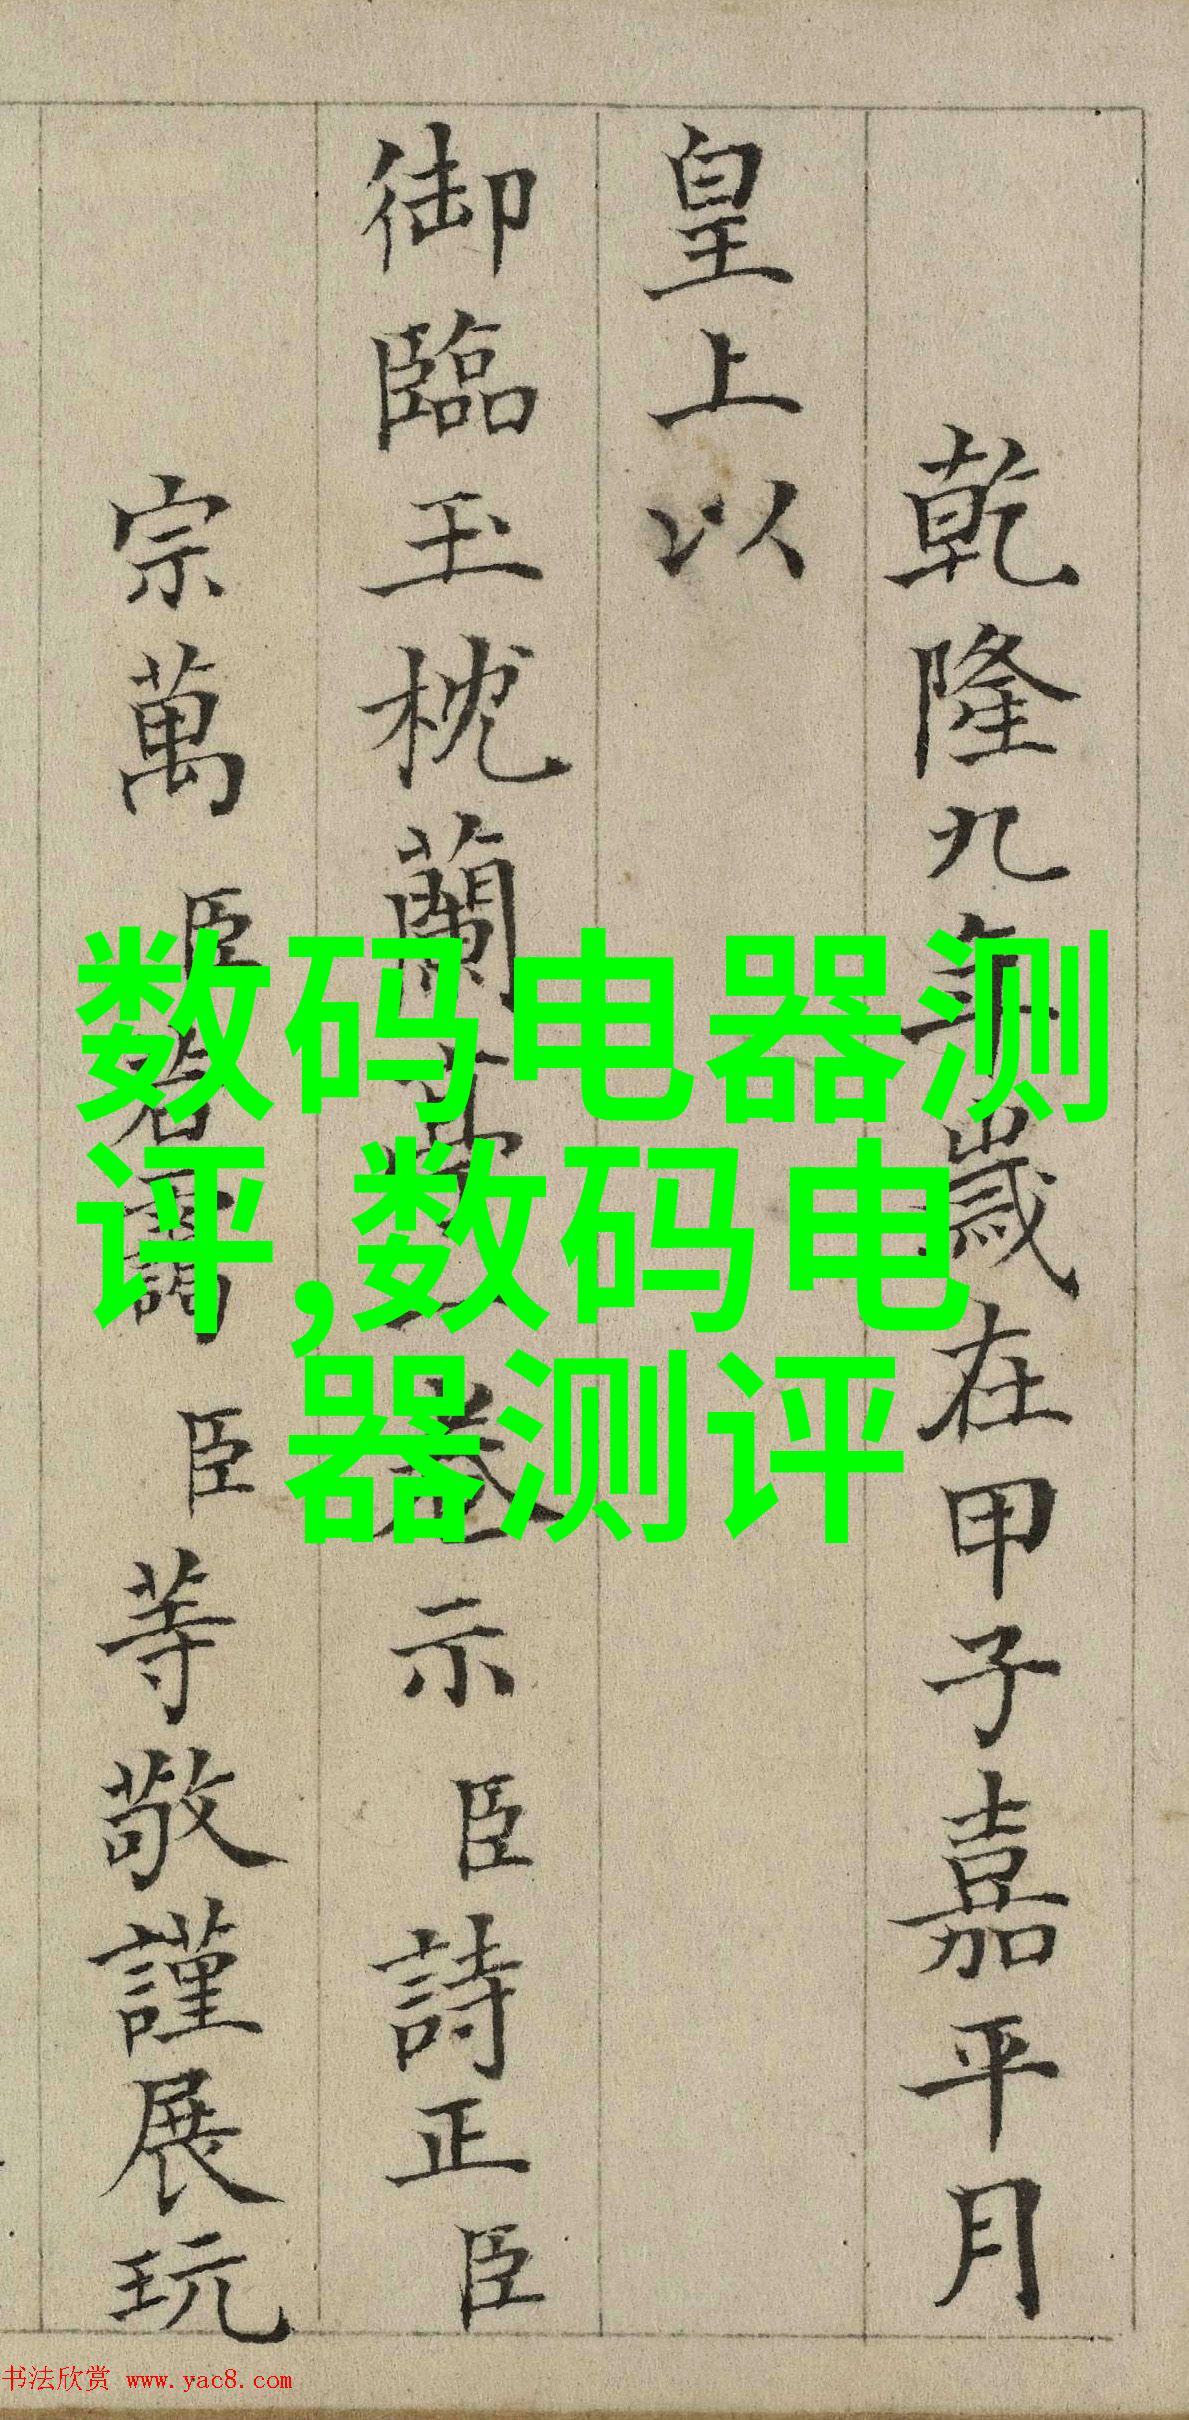 乾隆九年歲在甲子嘉平月
皇上以
御臨玉枕蘭亭卷示臣詩正臣
宗萬臣若靄臣等敬謹展玩
数码电器测
评,数码电
器测评
书法欣赏 www.yac8.com